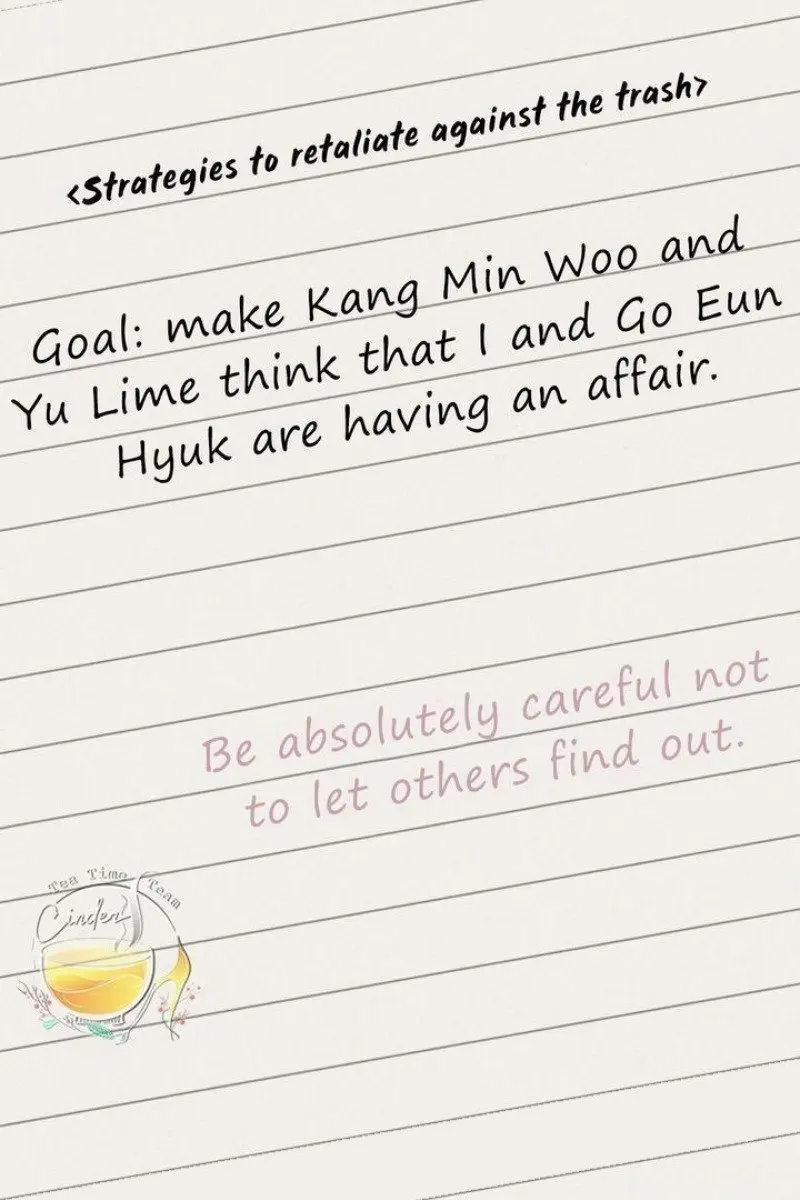 <Strategies to retaliate against the trash>
Goal: make Kang Min Woo and
Yu Lime think that I and Go Eun
Hyuk are having an affair.
Be absolutely careful not
to let others find out.
Tea Time Team
Cinder